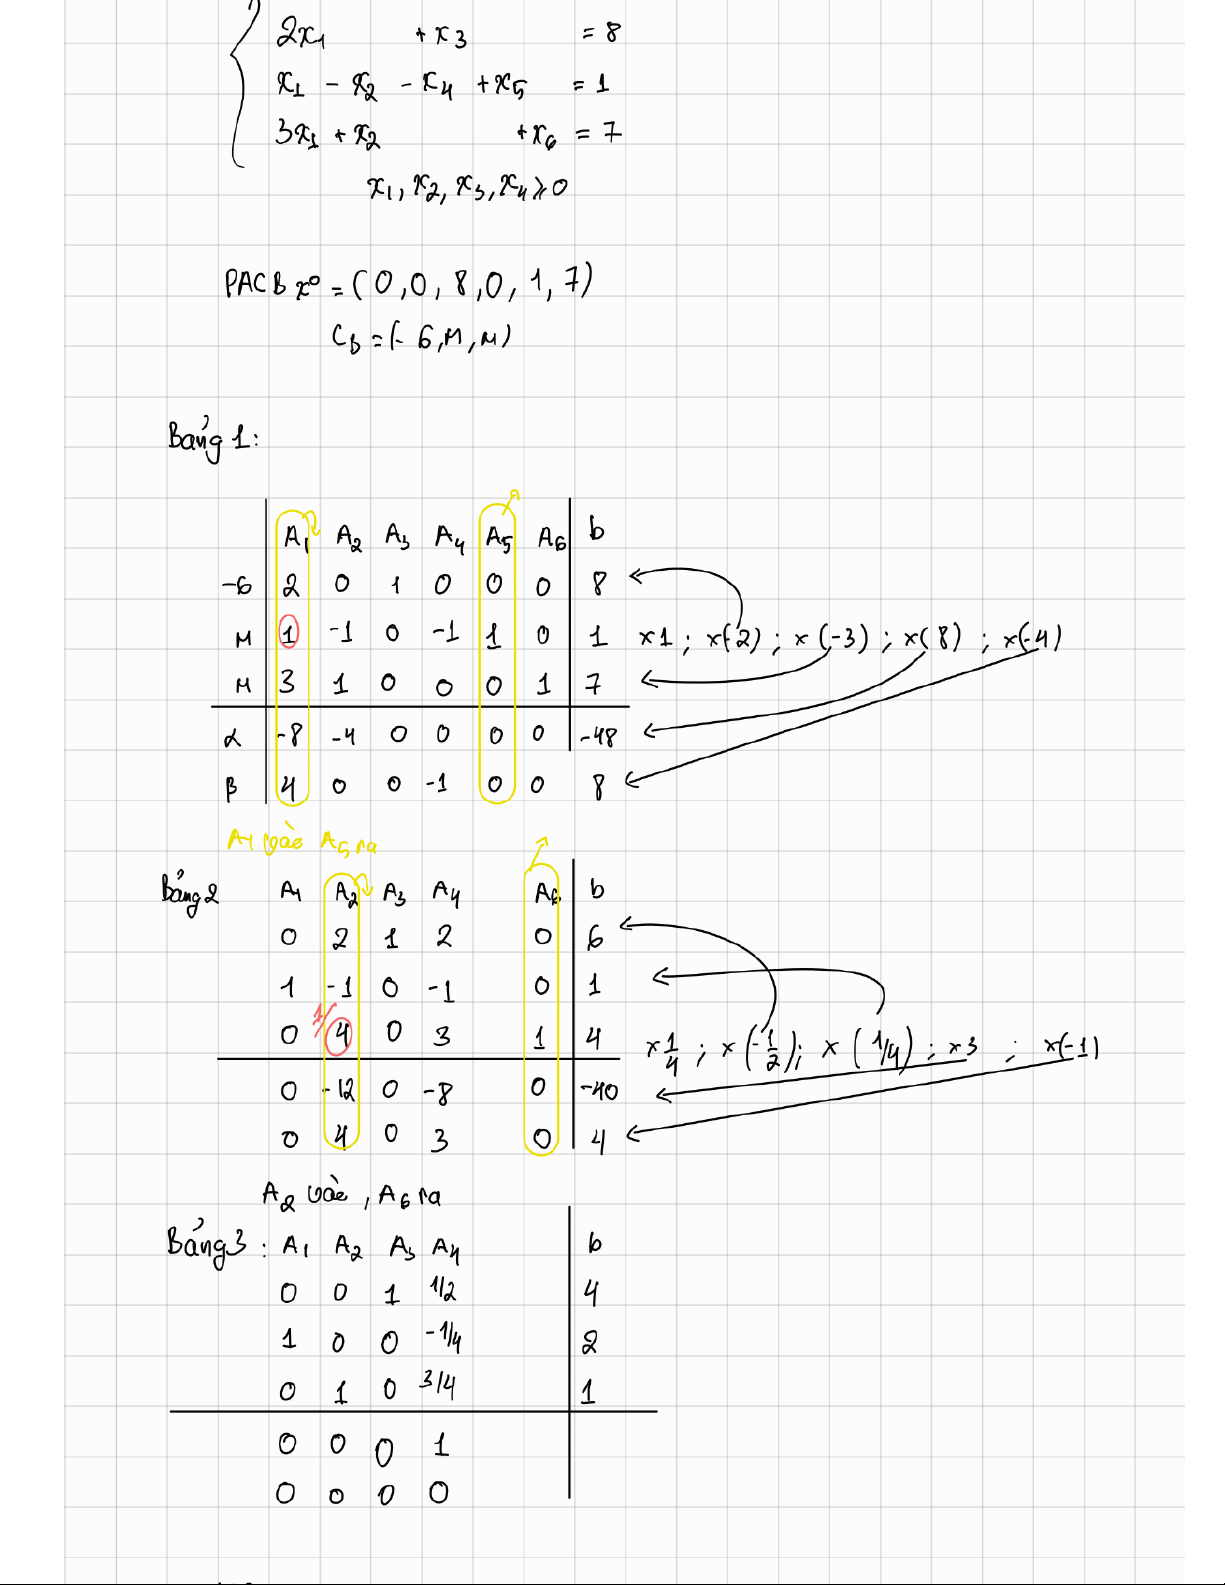 2x₁ + x₃ = 8
x₁ - x₂ - x₄ + x₅ = 1
3x₁ + x₂ + x₆ = 7
x₁, x₂, x₃, x₄ ⩾ 0
PACB x⁰ = (0, 0, 8, 0, 1, 7)
C_b = (-6, M, M)
Bảng 1:
A₁ A₂ A₃ A₄ A₅ A₆ b
-6 2 0 1 0 0 0 8
M 1 -1 0 -1 1 0 1 x1 ; x(-2) ; x(-3) ; x(8) ; x(-4)
M 3 1 0 0 0 1 7
α -8 -4 0 0 0 0 -48
β 4 0 0 -1 0 0 8
A₁ vào A₅ ra
Bảng 2 A₁ A₂ A₃ A₄ A₆ b
0 2 1 2 0 6
1 -1 0 -1 0 1
1/
0 4 0 3 1 4 x 1/4 ; x(-1/2) ; x(1/4) ; x3 ; x(-1)
0 -12 0 -8 0 -40
0 4 0 3 0 4
A₂ vào, A₆ ra
Bảng 3 : A₁ A₂ A₃ A₄ b
0 0 1 1/2 4
1 0 0 -1/4 2
0 1 0 3/4 1
0 0 0 1
0 0 0 0